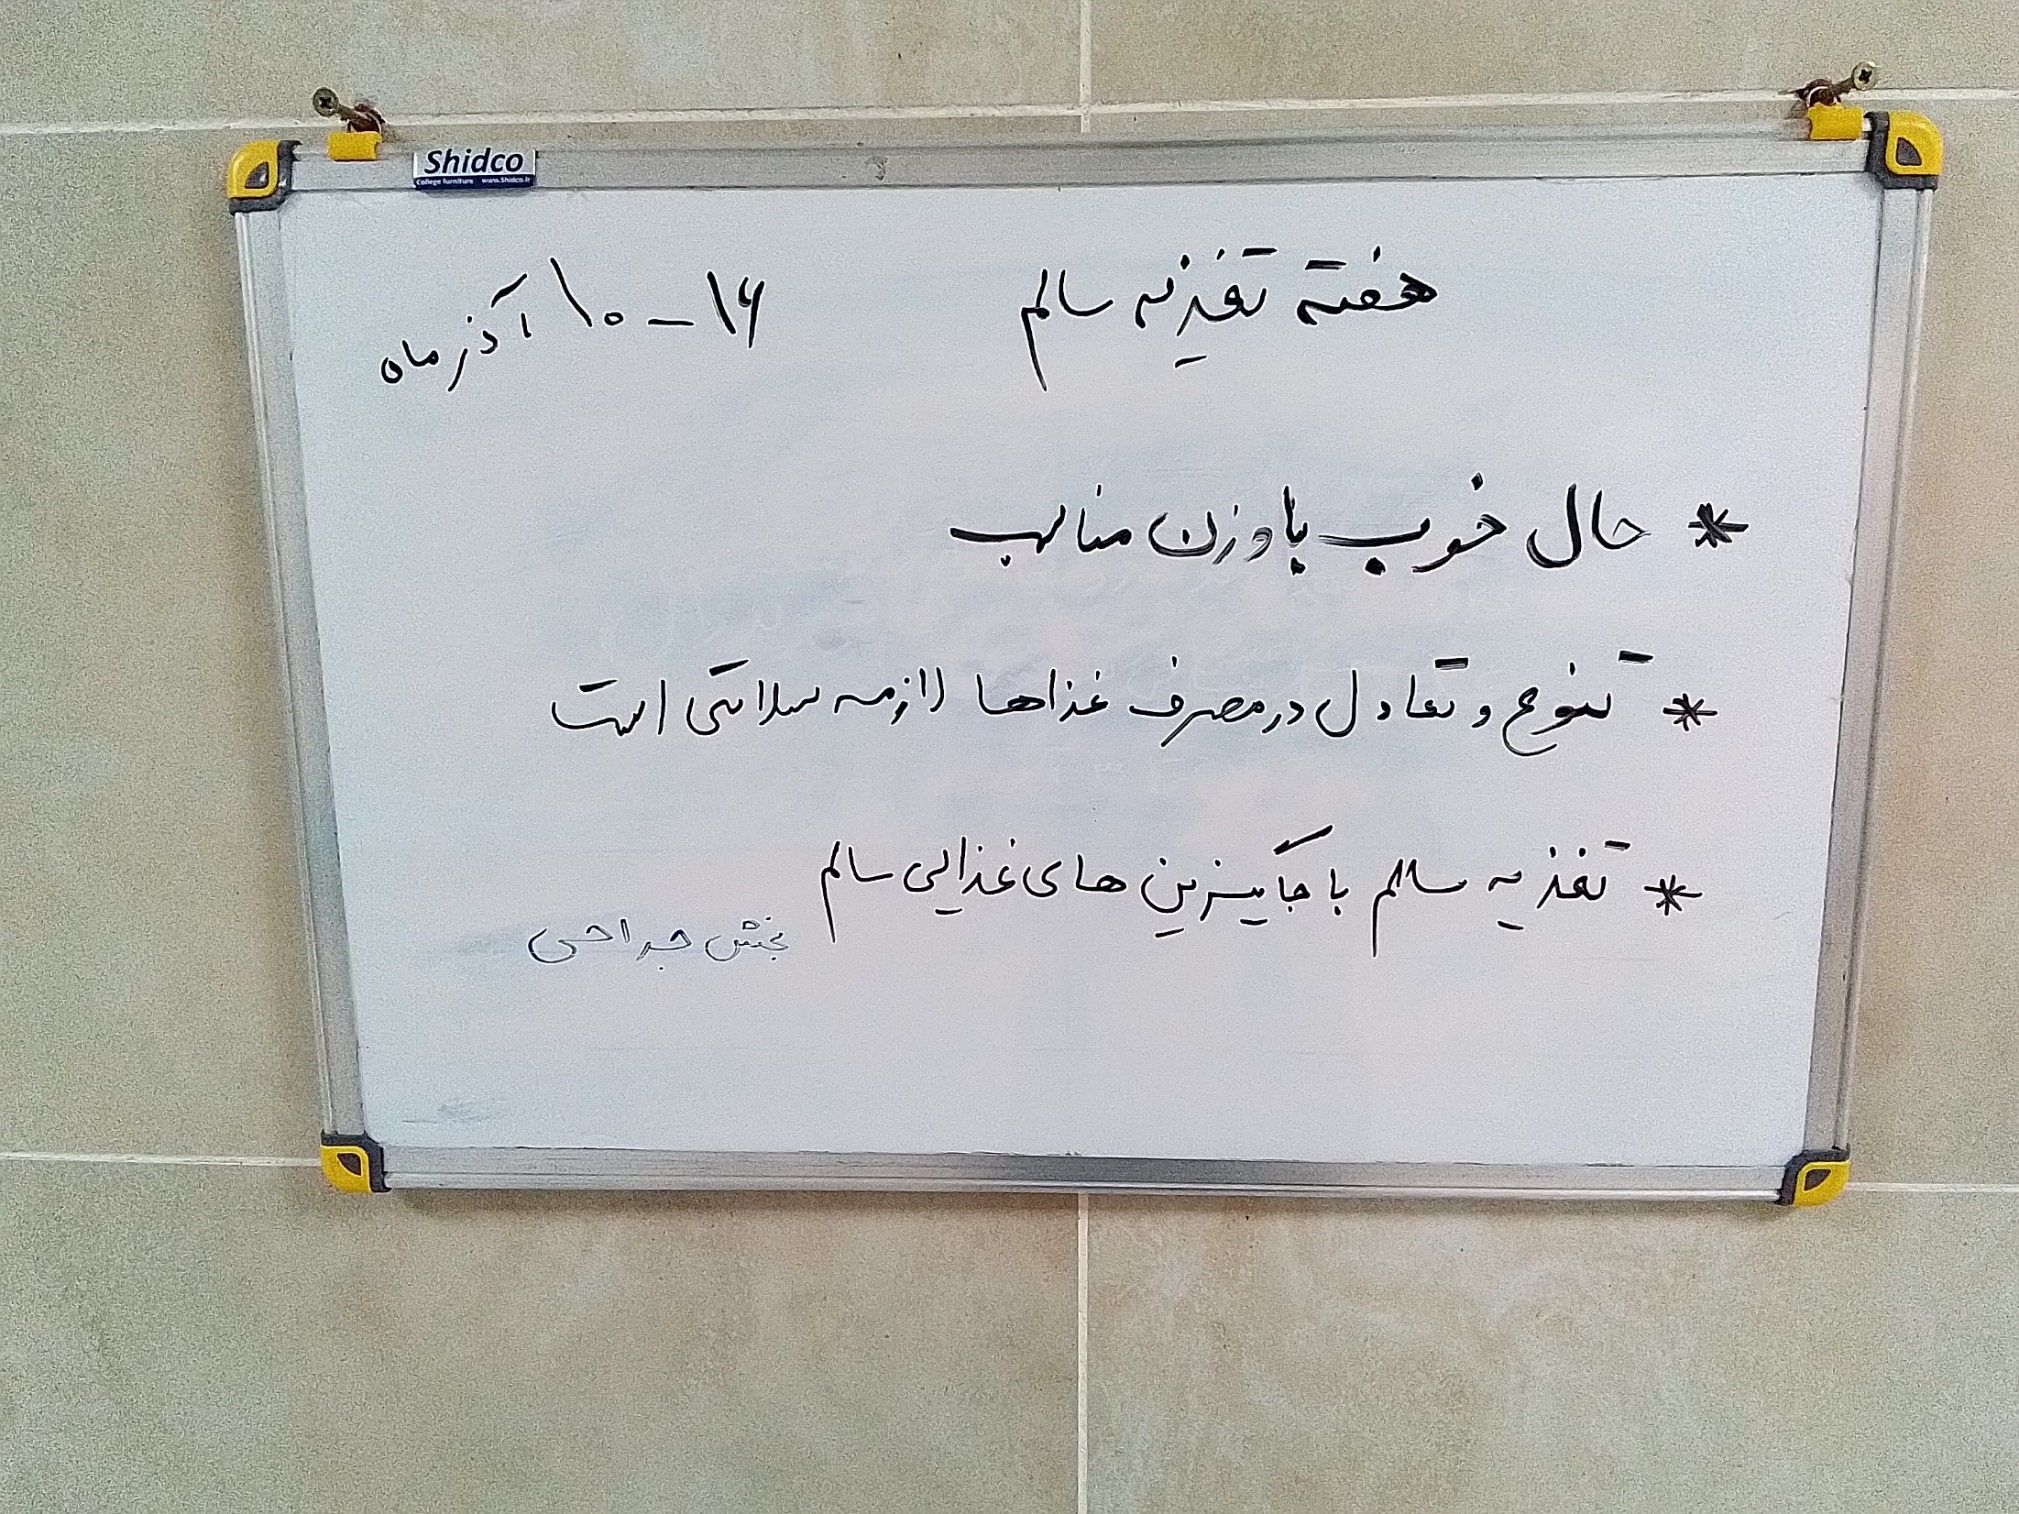 Shidco
College furniture www.Shidco.ir
هفته تغذیه سالم ۱۶ – ۱۰ آذر ماه
* حال خوب با وزن مناسب
* تنوع و تعادل در مصرف غذاها لازمه سلامتی است
* تغذیه سالم با جایگزین های غذایی سالم
بخش جراحی